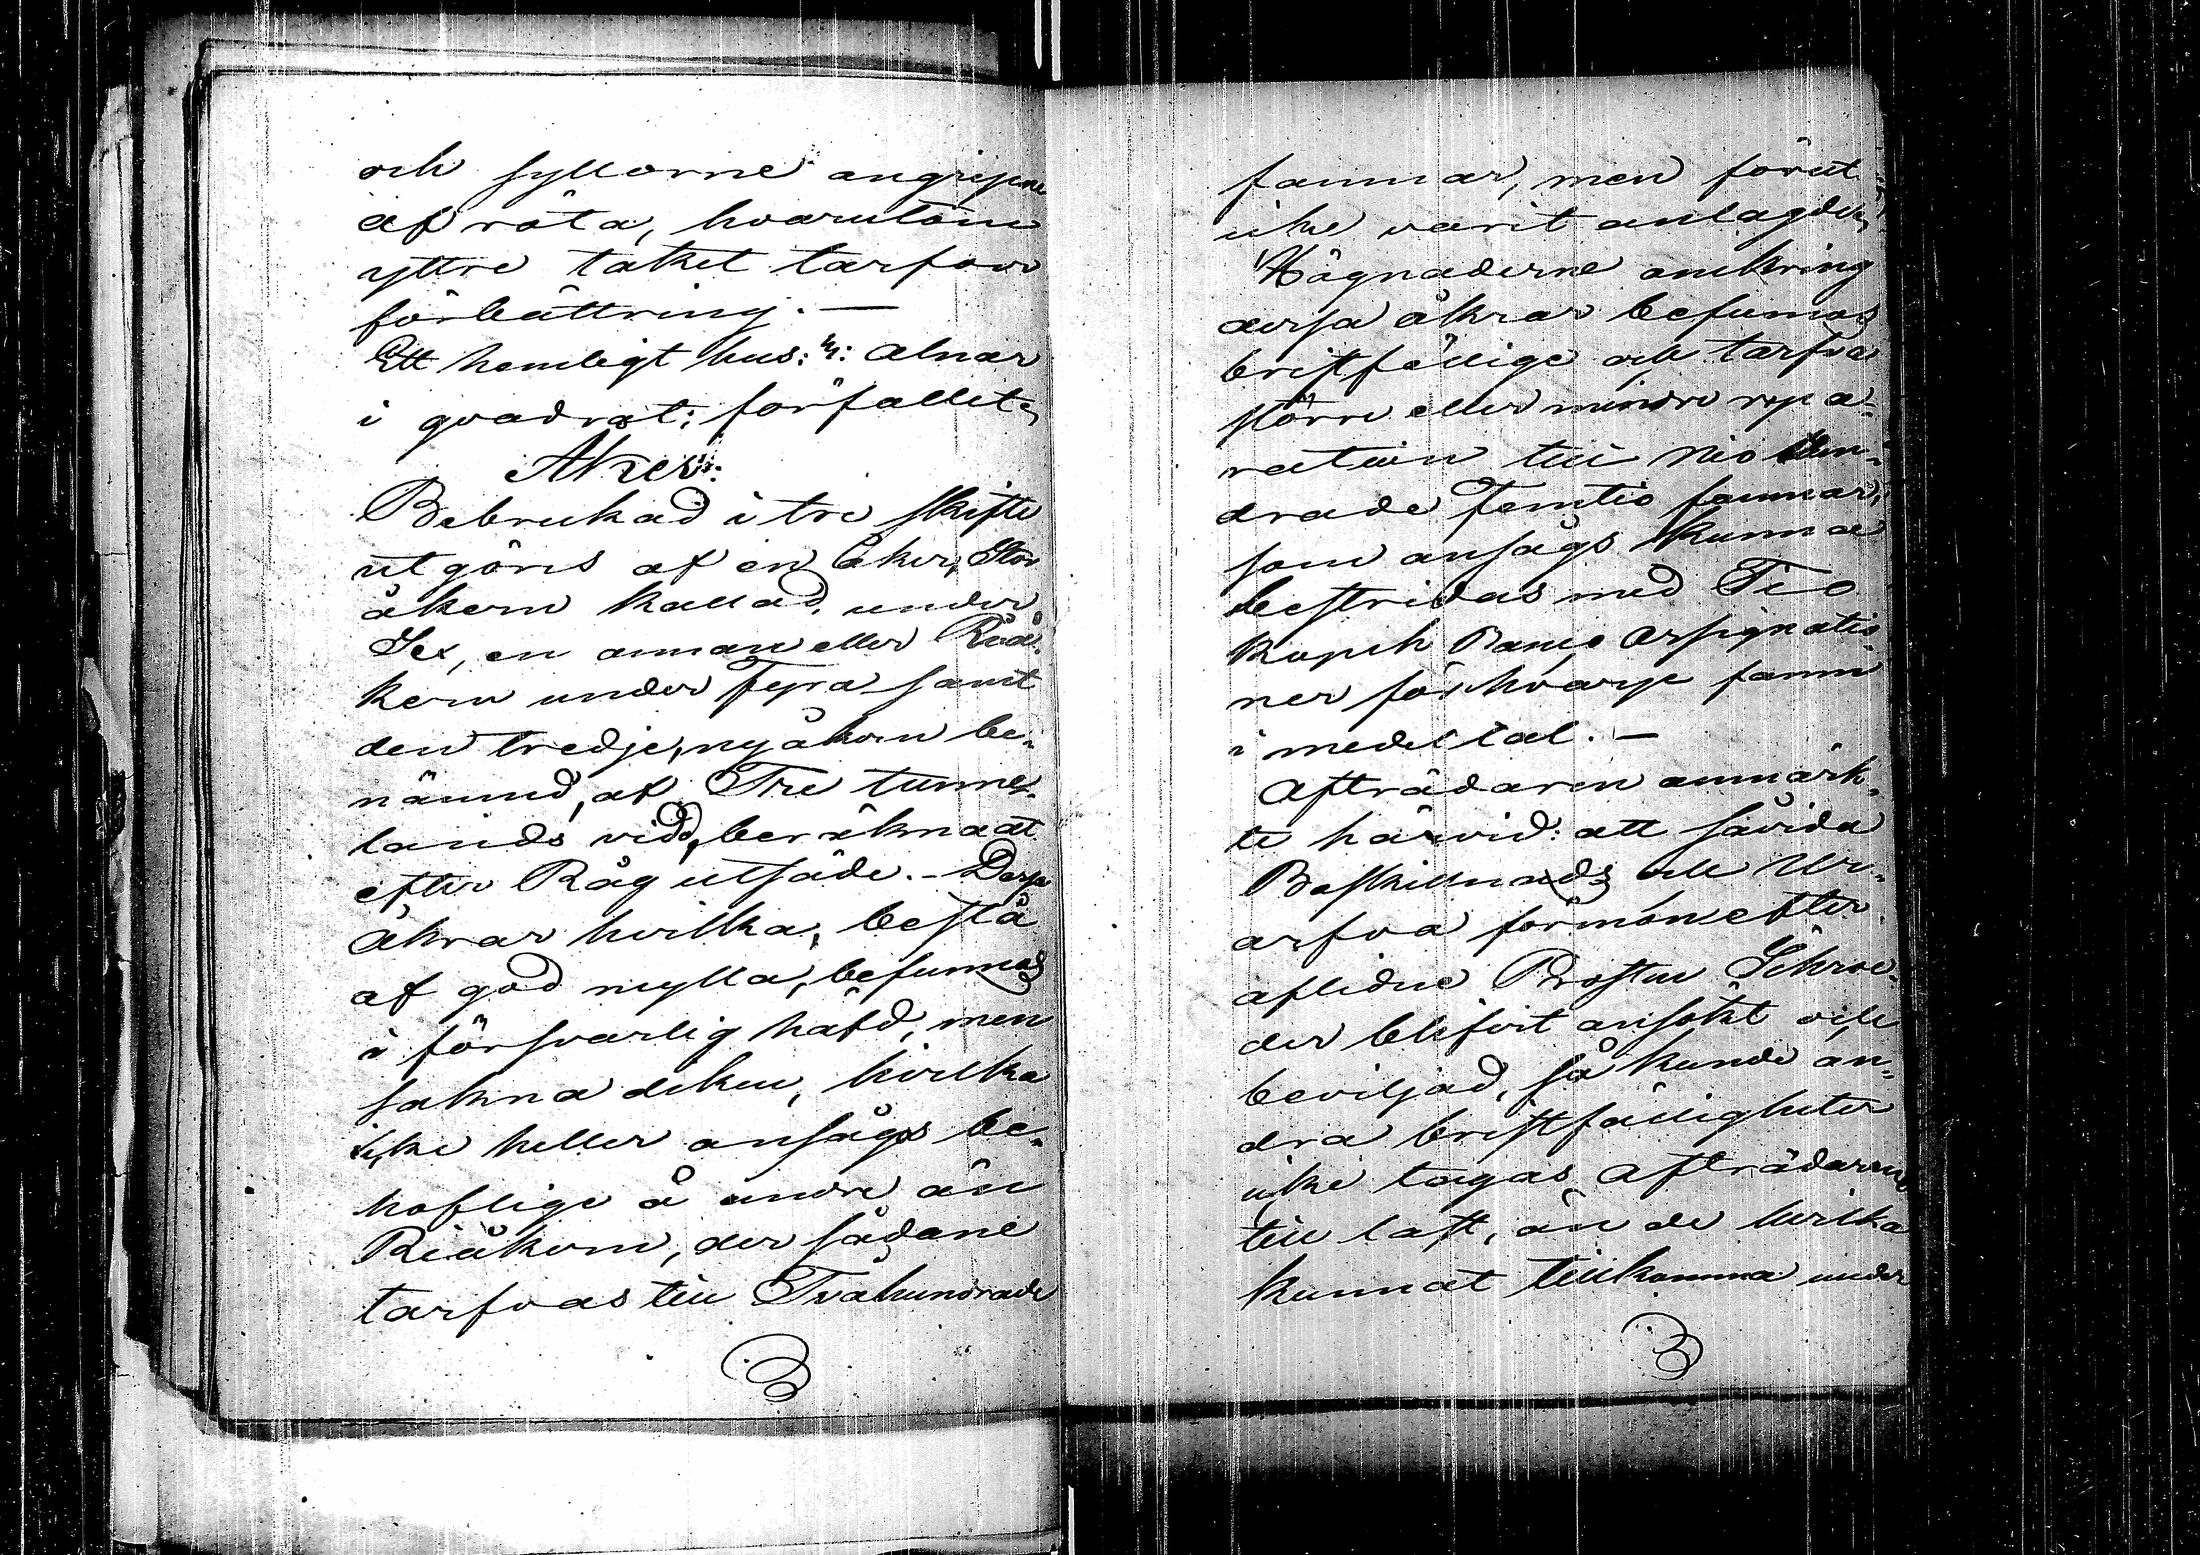 och syllorne angripne
af röta, hvarutom
yttre taket tarfvar
förbättring. —
Ett hemligt hus: 4: alnar
i qvadrat: förfallit,
Åker:
Bebrukad i tre skifte
utgöres af en åker, Stor
åkern kallad, under
Sex, en annan eller Riå-
kern under Fyra samt
den tredje, nyåkern be-
nämnd, af Tre tunne-
lands vidd, beräknadt
efter Råg utsäde. - Dessa
åkrar hvilka, bestå
af god mylla, befunnos
i försvarlig häfd, men
sakna diken, hvilka
icke heller ansågs be-
höflige å andre än
Riåkern, der sådane
tarfvas till Tvåhundrade
famnar, men förut
icke varit anlagde,
Hägnaderne omkring
dessa åkrar befunnos
bristfällige och tarfva
större eller mindre repa-
ration till Nio Hun-
drade Femtio famnar,
som ansågs kunna
bestridas med Tio
kopek Banco Assignatio-
ner för hvarje famn
i medeltal. —
Afträdaren anmärk-
te härvid: att såvida
Boskillnads och Ur-
arfva förmån efter
aflidne Prosten Schroe-
der blifvit ansökt och
beviljad, så kunde an-
dra bristfälligheter
icke tagas Afträdaren
till last, än de hvilka
kunnat tillkomma under